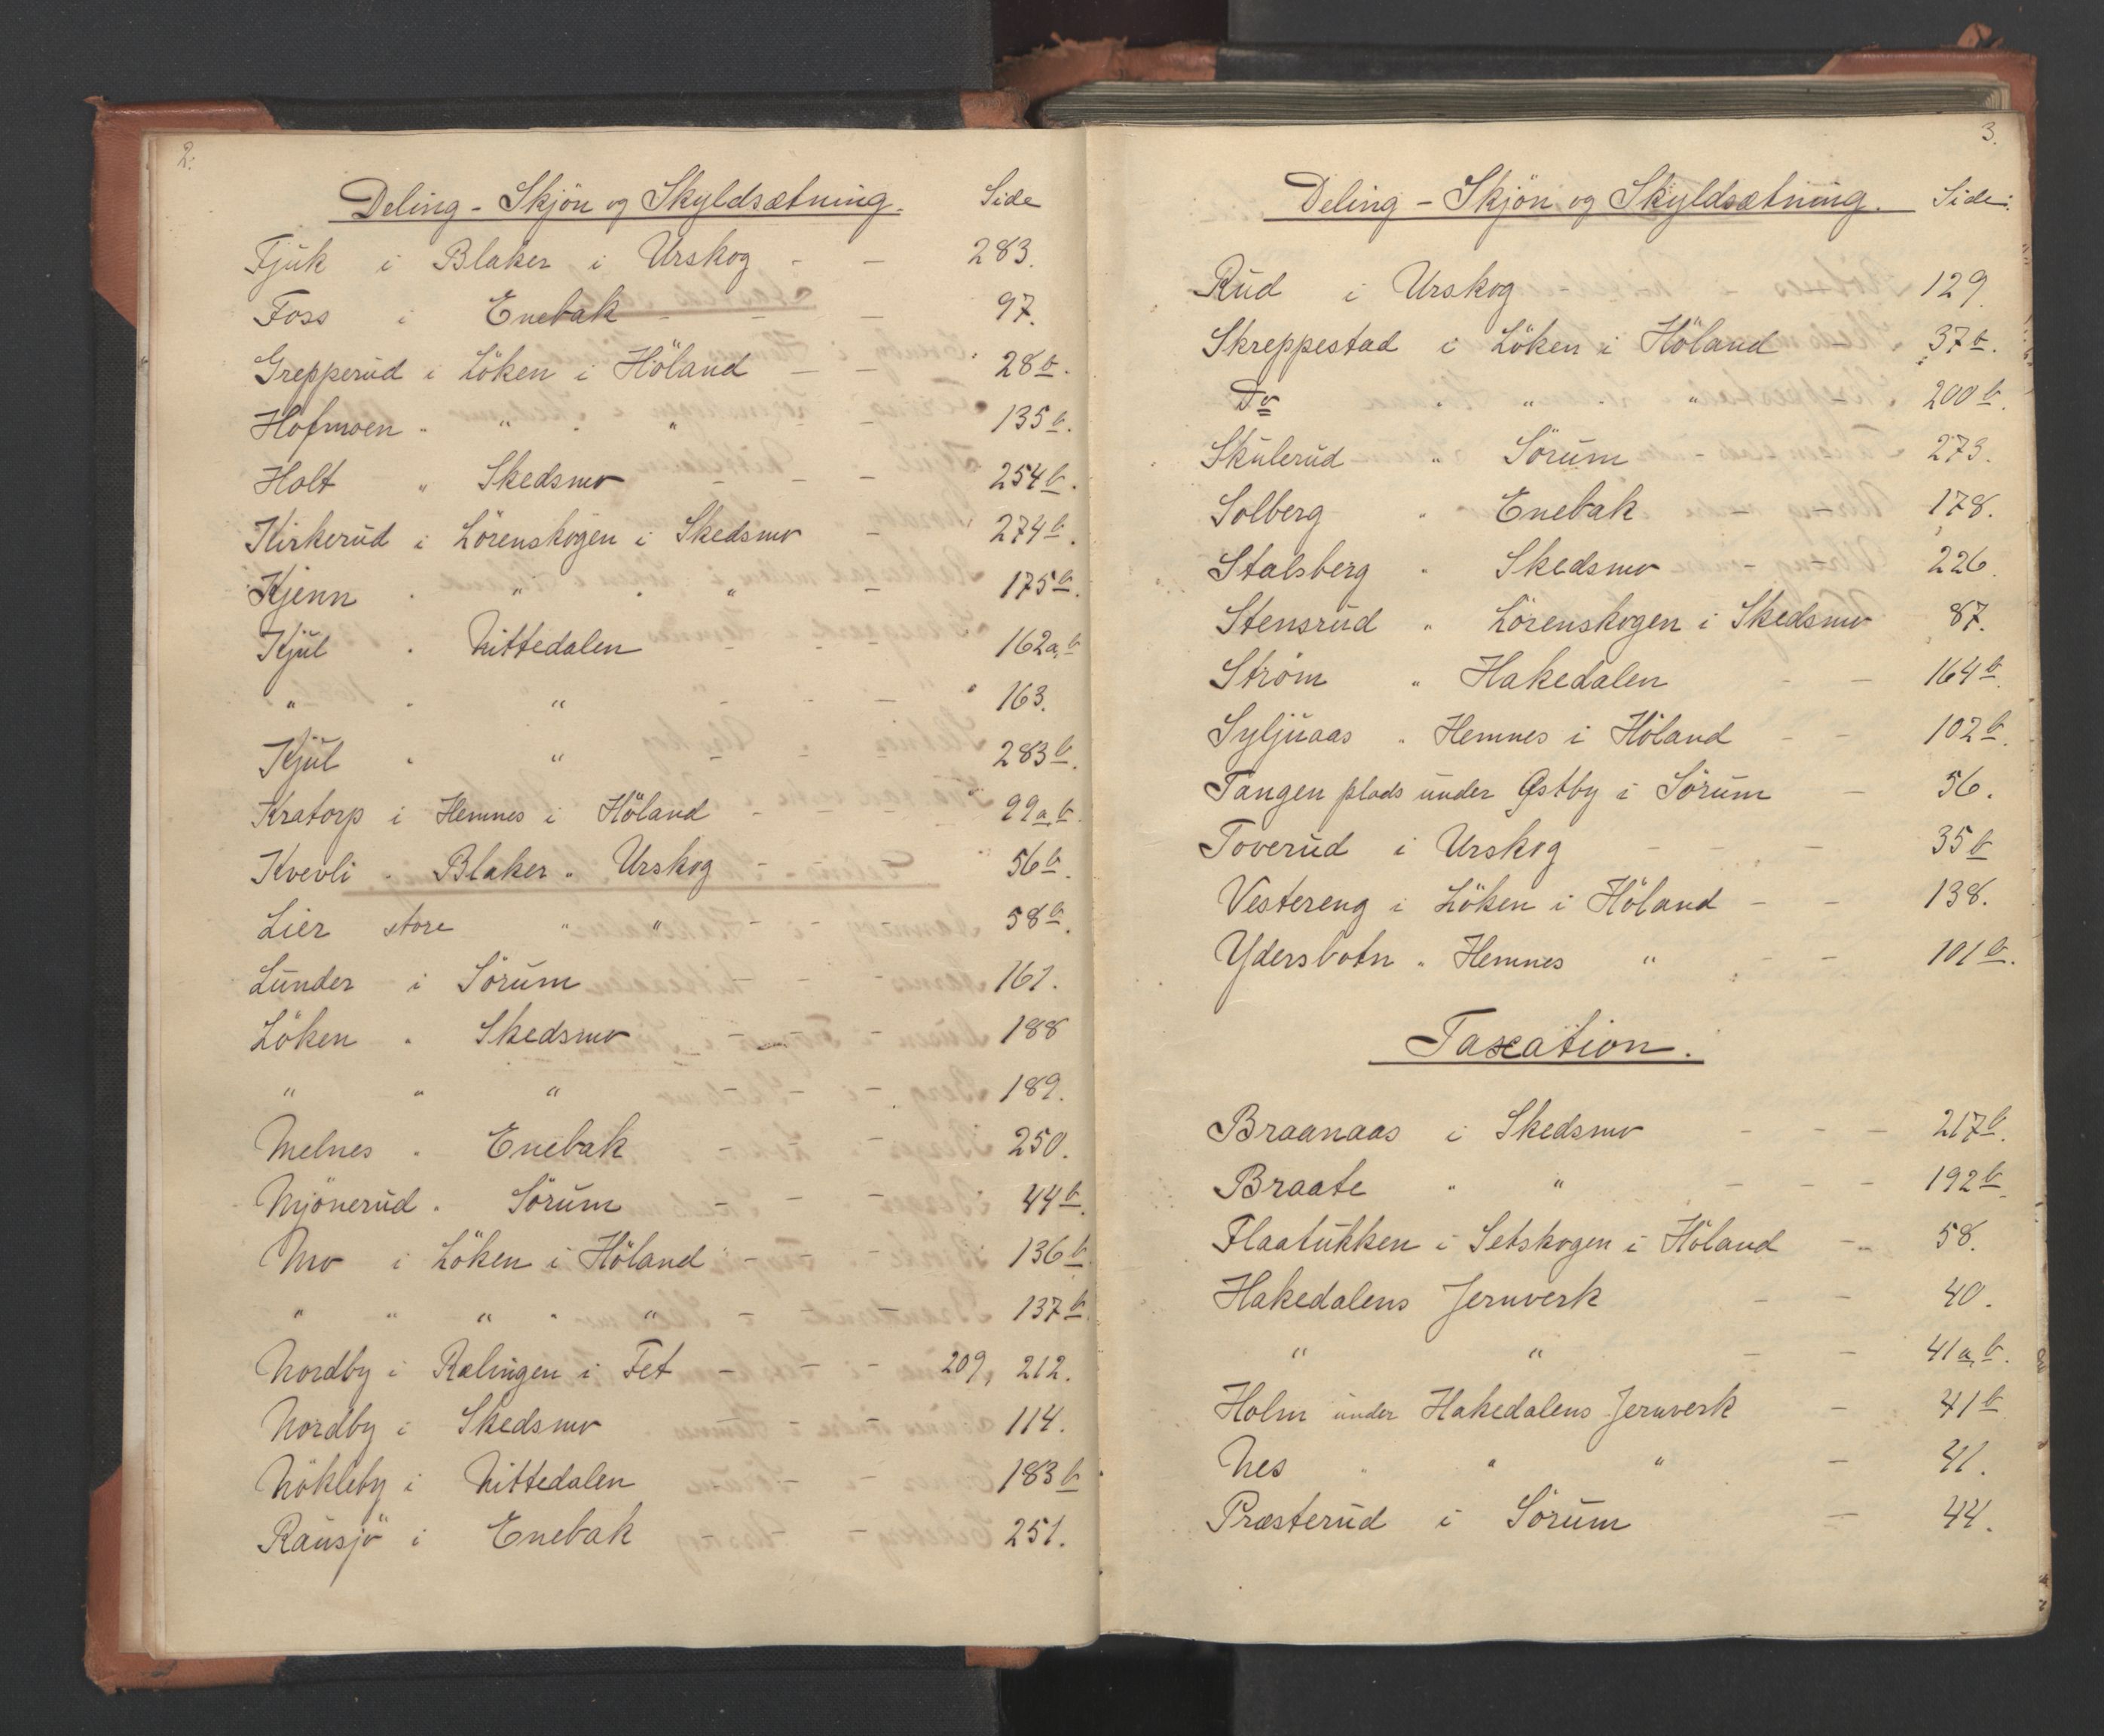 2.
Deling - Skjön og Skyldsætning. Side
Fjuk i Blaker i Urskog - - 283.
Foss i Enebak - - - 97.
Grepperud i Löken i Höland - - 28b.
Hofmoen " " . " - - 135b.
Holt " Skedsmo - - - 254b.
Kirkerud i Lörenskogen i Skedsmo - 274b.
Kjenn . " . " - 175b.
Kjul . Nittedalen 162a,b
" . " - - - 163.
Kjul . " 283b.
Kratorp i Hemnes i Höland - - - 99a,b.
Kvevli . Blaker " Urskog - 56b.
Lier store " " - - 58b.
Lunder i Sörum - - 161.
Löken . Skedsmo - - 188
" " " - - 189.
Melnes . Enebak - - 250.
Mjönerud . Sörum - - - 44b.
Mo i Löken i Höland - - 136b
" " " . " - 137b.
Nordby i Rælingen i Fet - - - 209, 212.
Nordby i Skedsmo - - 114.
Nökleby i Nittedalen - 183b
Rausjö i Enebak - - 251.
3.
Deling - Skjön og Skyldsætning. Side:
Rud i Urskog 129.
Skreppestad i Löken i Höland - 37b.
Do . " . " - 200b.
Skulerud " Sörum 273.
Solberg " Enebak 178.
Stalsberg " Skedsmo 226.
Stensrud " Lörenskogen i Skedsmo 87.
Ström " Hakedalen - - 164b.
Syljuaas " Hemnes i Höland - - 102b.
Tangen plads under Østby i Sörum - 56.
Toverud i Urskog - - - 35b
Vestereng i Löken i Höland - - 138.
Ydersbotn " Hemnes " - - 101b.
Taxation.
Braanaas i Skedsmo - - - 217b.
Braate " " - - - 192b.
Flaatukken i Setskogen i Höland - 58.
Hakedalens Jernverk - - 40.
" " - - 41a,b.
Holm under Hakedalens Jernverk - 41b
Nes . " " - 41.
Præsterud i Sörum - 44.